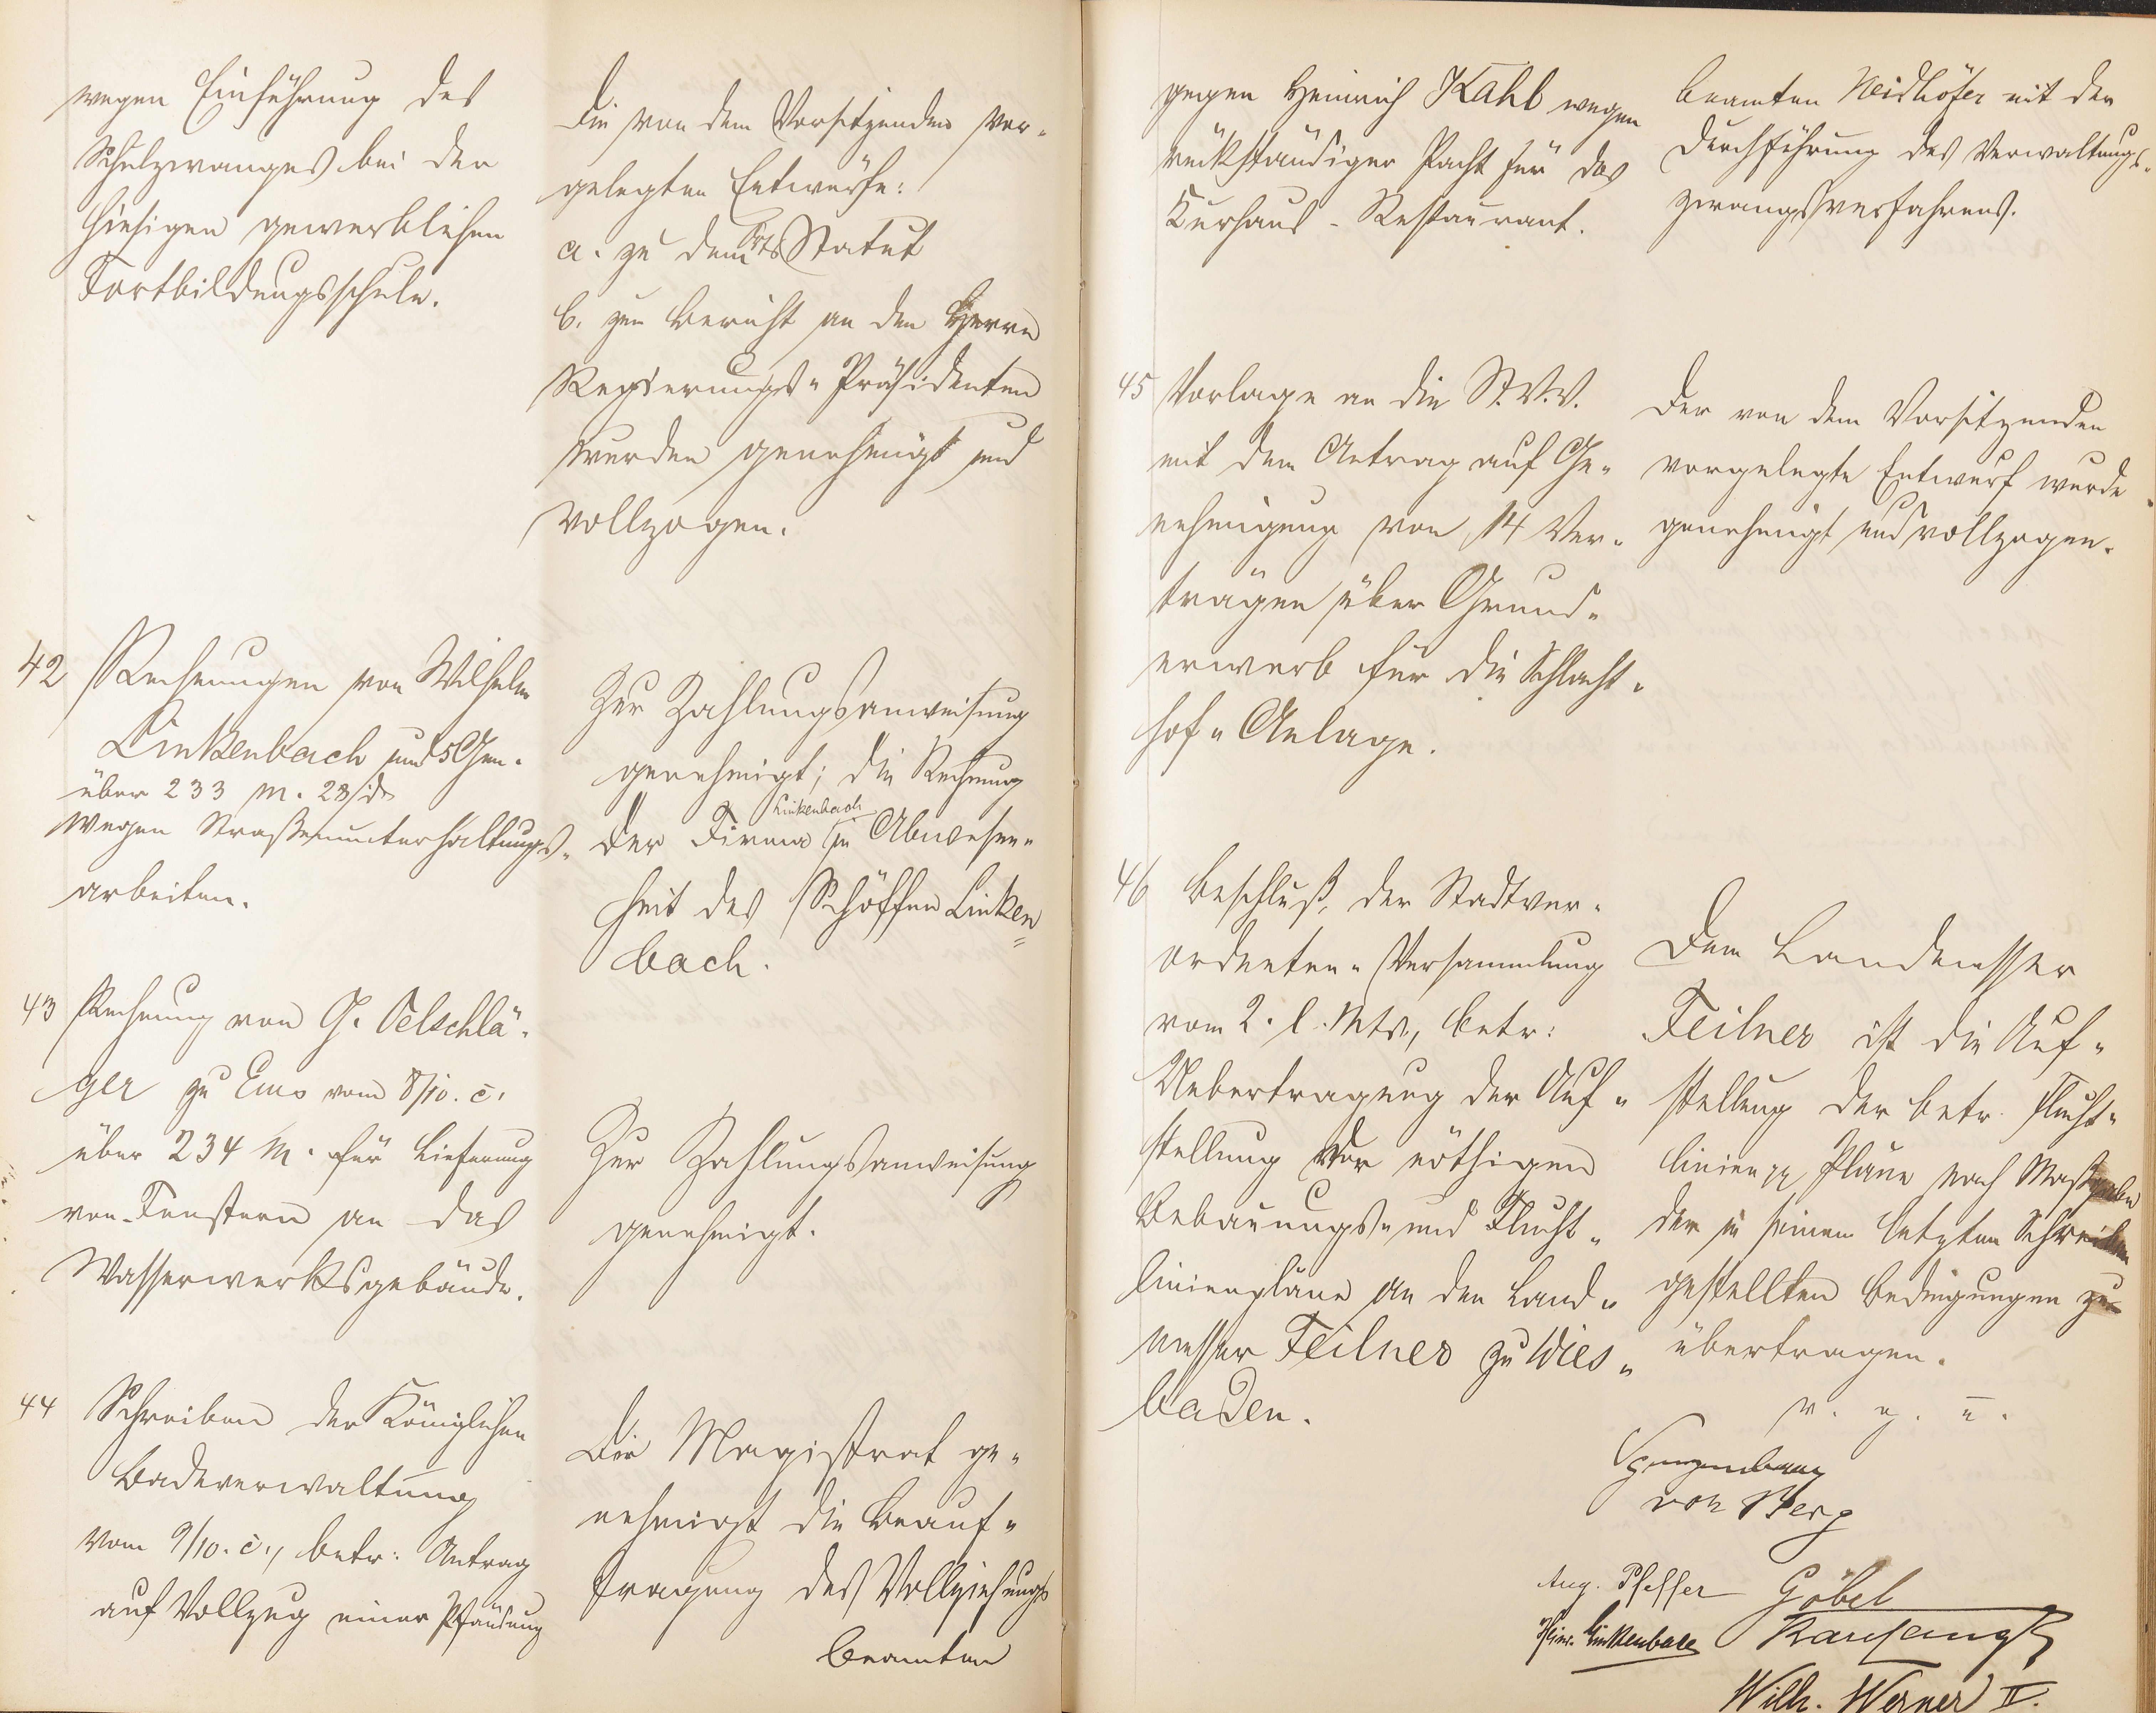 wegen Einführung des
Schulzwanges bei der
hiesigen gewerblichen
Fortbildungsschule.
Die von dem Vorsitzenden vor-
gelegten Entwürfe:
a. zu dem Orts Statut
b. zum Bericht an den Herrn
Regierungs-Präsidenten
wurden genehmigt und
vollzogen.
42 Rechnungen von Wilhelm
Linkenbach und 5 Gen.
über 233 M. 23 d
wegen Straßenunterhaltungs-
arbeiten.
Zur Zahlungsanweisung
genehmigt; die Rechnung
der Firma Linkenbach in Abwesen-
heit des Schöffen Linken
bach.
43 Rechnung von G. Oelschlä-
ger zu Ems vom 8/10. c.
über 234 M. für Lieferung
von Fenstern an das
Wasserwerksgebäude.
Zur Zahlungsanweisung
genehmigt.
44 Schreiben der Königlichen
Badeverwaltung
vom 9/10. c., betr: Antrag
auf Vollzug einer Pfändung
Der Magistrat ge-
nehmigt die Beauf-
tragung des Vollziehungs
beamten
gegen Heinrich Kahl wegen
rückständiger Pacht für das
Kurhaus-Restaurant.
beamten Neidhöfer mit der
Durchführung des Verwaltungs-
zwangsverfahrens.
45 Vorlage an die St.V.V.
mit dem Antrag auf Ge-
nehmigung von 14 Ver-
trägen über Grund-
erwerb für die Schlacht-
hof-Anlage.
Der von dem Vorsitzenden
vorgelegte Entwurf wurde
genehmigt und vollzogen.
46 Beschluß der Stadtver-
ordneten-Versammlung
vom 2. l. Mts., betr:
Uebertragung der Auf-
stellung der nöthigen
Bebauungs- und Flucht-
linienpläne an den Land-
messer Feilner zu Wies-
baden.
Dem Landmesser
Feilner ist die Auf-
stellung der betr. Flucht-
linien pp Pläne nach Maßgabe
der in seinem letzten Schreiben
gestellten Bedingungen zu
übertragen.
v. g. u.
Spangenberg
von Berg
Aug. Pfeffer Göbel
Heinr. Linkenbach
Wilh. Werner II.